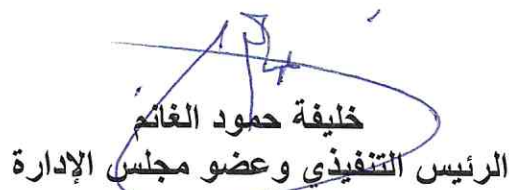 خليفة حمود الغانم
الرئيس التنفيذي وعضو مجلس الإدارة